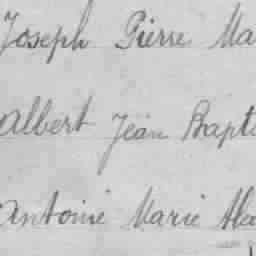 Joseph Pierre Ma
Albert Jean Bapt
Antoine Marie